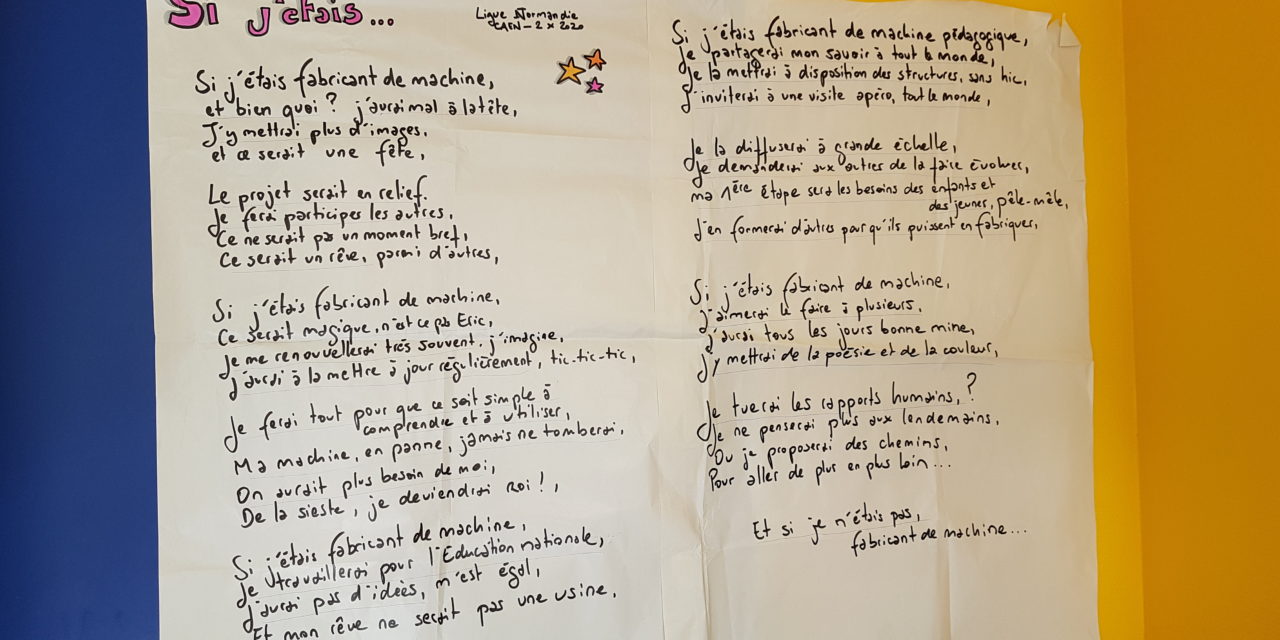 Si j'étais...
Ligue Normandie
CAEN - 2 x 2020
Si j'étais fabricant de machine,
et bien quoi ? j'aurai mal à la tête,
J'y mettrai plus d'images,
et ce serait une fête,
Le projet serait en relief.
Je ferai participer les autres,
Ce ne serait pas un moment bref,
Ce serait un rêve, parmi d'autres,
Si j'étais fabricant de machine,
Ce serait magique, n'est ce pas Eric,
Je me renouvellerai très souvent, j'imagine,
J'aurai à la mettre à jour régulièrement, tic-tic-tic,
Je ferai tout pour que ce soit simple à
comprendre et à utiliser,
Ma machine, en panne, jamais ne tomberai,
On aurait plus besoin de moi,
De la sieste, je deviendrai roi !,
Si j'étais fabricant de machine,
Je travaillerai pour l'Education nationale,
J'aurai pas d'idées, m'est égal,
Et mon rêve ne serait pas une usine,
Si j'étais fabricant de machine pédagogique,
Je partagerai mon savoir à tout le monde,
Je la mettrai à disposition des structures, sans hic,
J'inviterai à une visite apéro, tout le monde,
Je la diffuserai à grande échelle,
Je demanderai aux autres de la faire évoluer,
ma 1ère étape sera les besoins des enfants et
des jeunes, pêle-mêle,
J'en formerai d'autres pour qu'ils puissent en fabriquer,
Si j'étais fabricant de machine,
J'aimerai le faire à plusieurs,
J'aurai tous les jours bonne mine,
J'y mettrai de la poésie et de la couleur,
Je tuerai les rapports humains, ?
Je ne penserai plus aux lendemains,
Ou je proposerai des chemins,
Pour aller de plus en plus loin...
Et si je n'étais pas,
fabricant de machine...